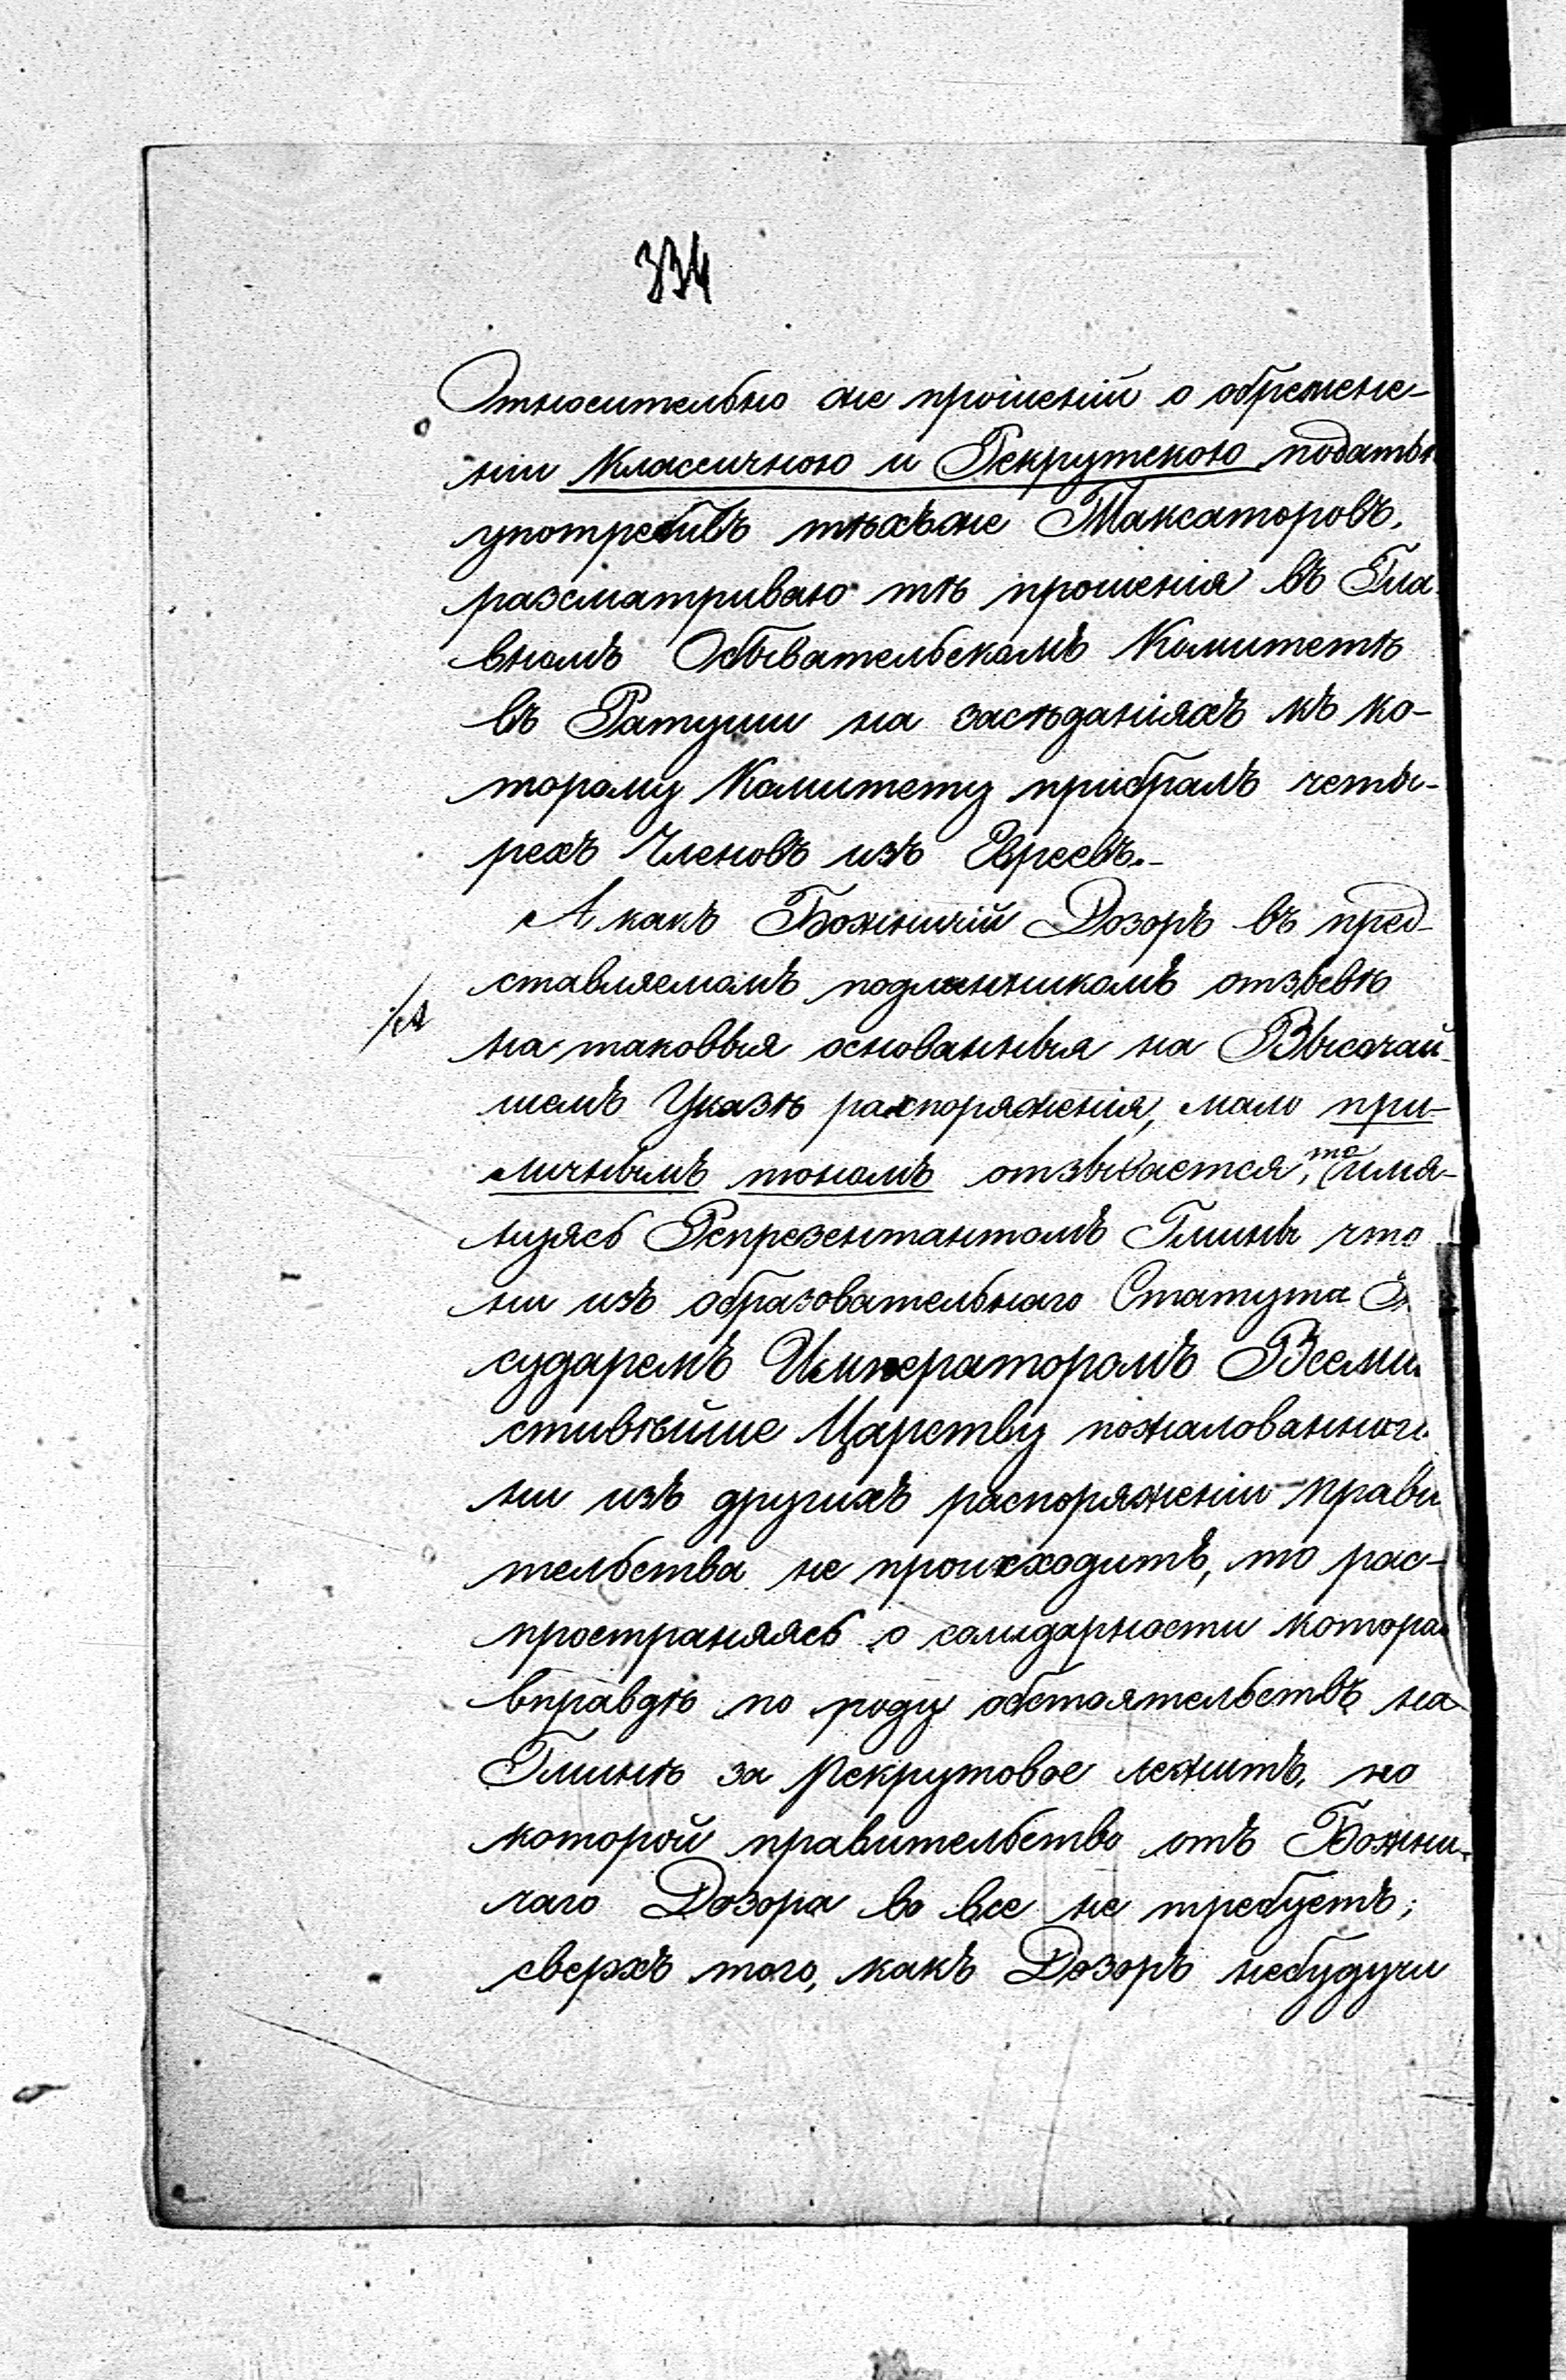 334
Относительно же прошеній о обремене-
ніи Классичною и Рекрутскою податью
употребивъ тѣхъже Таксаторовъ,
разсматриваю тѣ прошенія въ Гла
вномъ Обывательскомъ Комитетѣ
въ Ратуши на засѣданіяхъ къ ко-
торому Комитету прибралъ четы-
рехъ Членовъ изъ Евреевъ.-
А какъ Божничій Дозоръ въ пред-
ставляемомъ подлинникомъ отзывѣ
на таковыя основанныя на Высочай-
шемъ Указѣ распоряженія, мало при-
личнымъ тономъ отзывается, то имя-
нуясь Репрезентантомъ Гмины что
ни изъ образовательнаго Статута
сударемъ Императоромъ Всеми
стивѣйше Царству пожалованнаго
ни изъ другихъ распоряженіи прави
тельства не происходитъ, то рас-
пространяясь о солидарности котора
вправдѣ по роду обстоятельствъ на
Гминѣ за рекрутовое лежитъ, но
которой правительство отъ Божни-
чаго Дозора во все не требуетъ;
сверхъ того, какъ Дозоръ небудучи